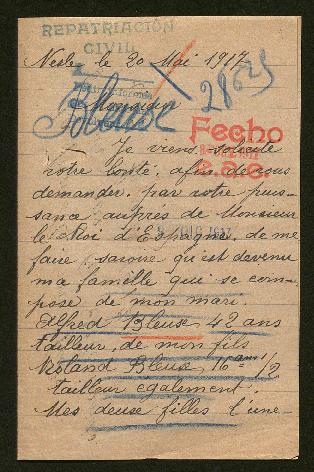 REPATRIACIÓN
CIVIL
Nesle le 20 Mai 1917
28625
Monsieur
Bleuse
Fecho
Je viens solicite
votre bonté, afin de vous
demander, par votre puis-
sance auprès de Monsieur
le Roi d'Espagne, de me
faire savoire qu'est devenu
ma famille qui se com-
pose de mon mari.
Alfred Bleuse, 42 ans
tailleur, de mon fils
Roland Bleuse, 16 ans 1/2
tailleur également.
Mes deuse filles l'une